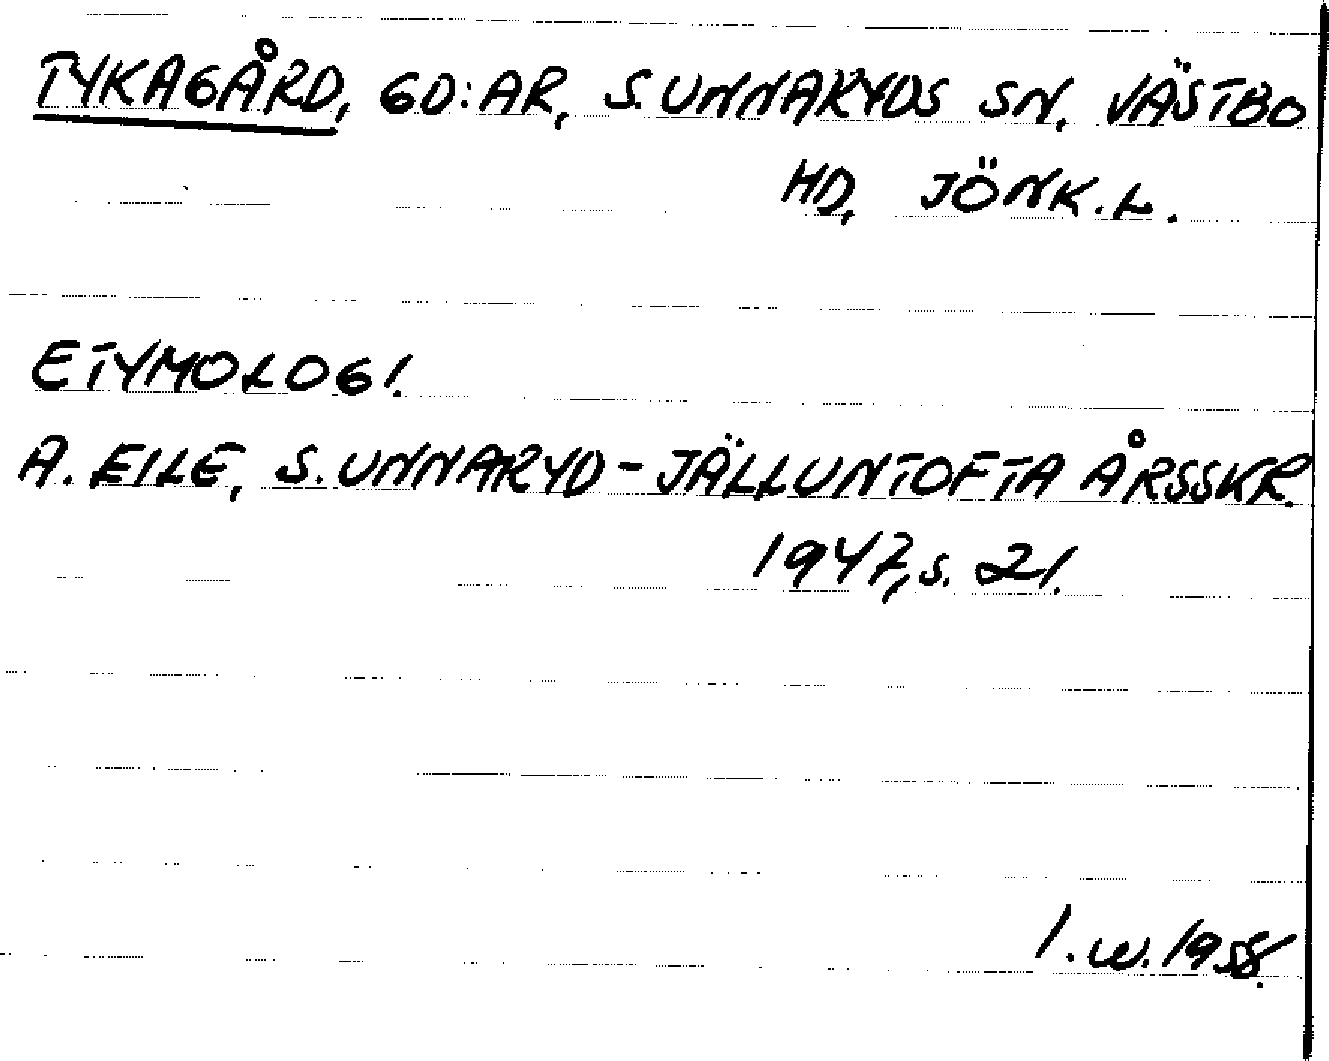 TYKAGÅRD, GD:AR, S. UNNARYDS SN. VÄSTBO
HD, JÖNK.L.
ETYMOLOGI.
A. EILE, S. UNNARYD-JÄLLUNTOFTA ÅRSSKR.
1947, s. 21.
I.W. 1958.